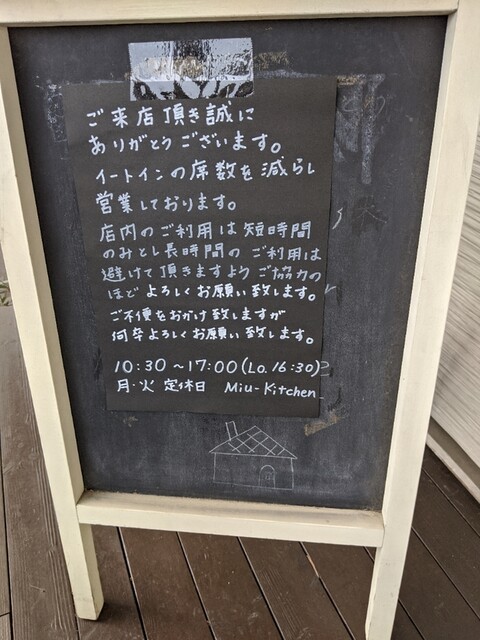 ご来店頂き誠に
ありがとうございます。
イートインの席数を減らし
営業しております。
店内のご利用は短時間
のみとし長時間のご利用は
避けて頂きますようご協力の
ほどよろしくお願い致します。
ご不便をおかけ致しますが
何卒よろしくお願い致します。
10:30〜17:00(Lo.16:30)
月・火 定休日 Miu-Kitchen